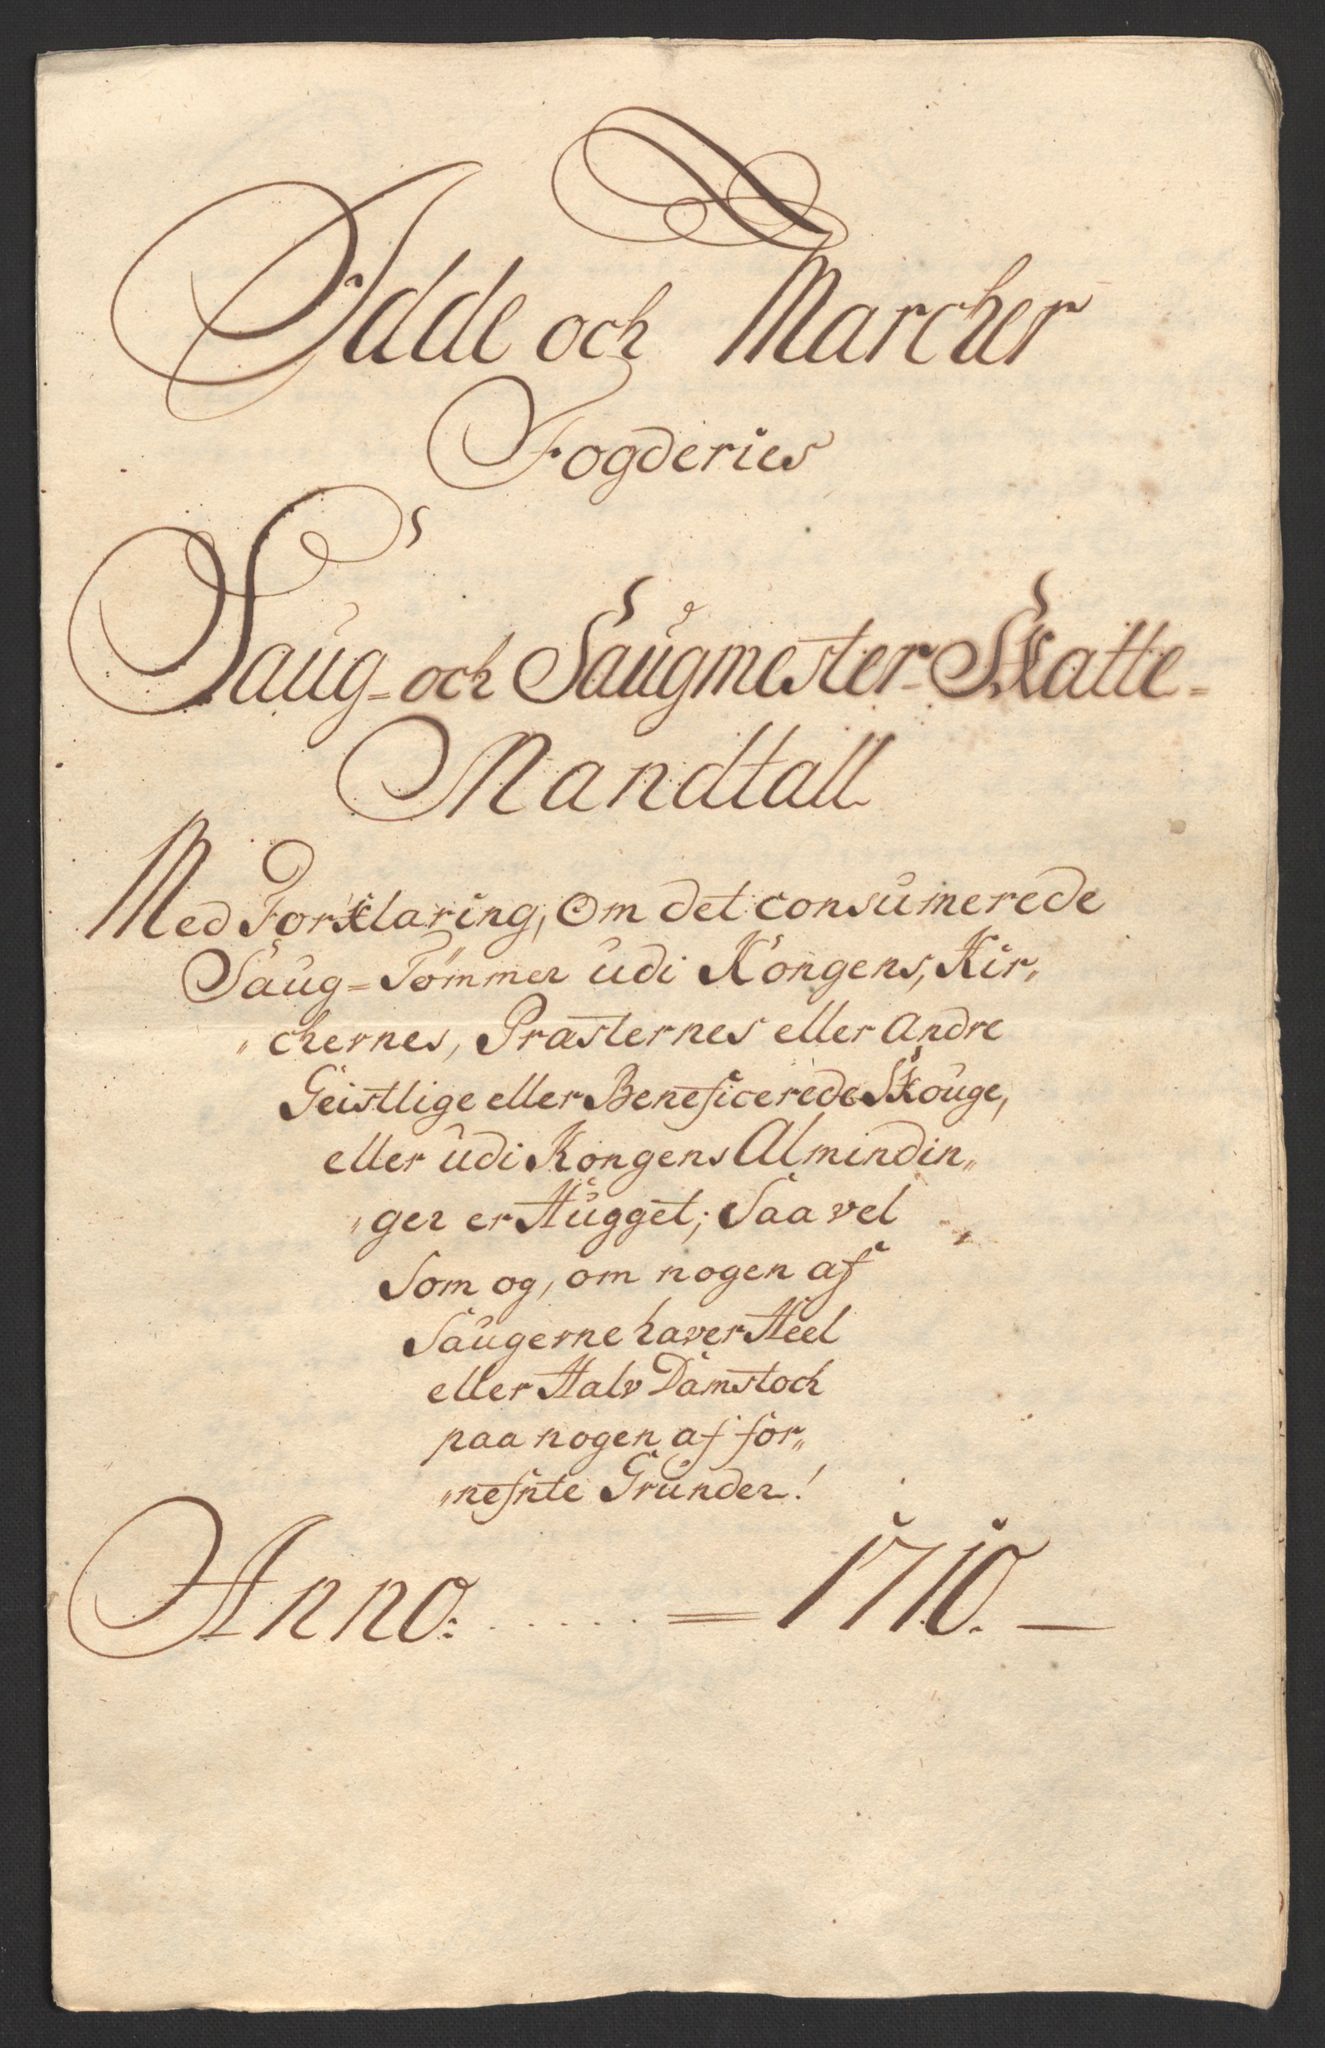 Idde och Marcher
Fogderies
Saug- och Saugmester Skatte-
Mandtall
Med Forklaring, Om det consumerede
Saug=Tømmer udi Kongens, Kir„
„chernes, Præsternes eller Andre
Geistlige eller Beneficerede Skouge,
eller udi Kongens Almindin„
„ger er Hugget; Saa vel
Som og, om nogen af
Saugerne haver Heel
eller Halv Damstoch
paa nogen af for„
„nefnte Grunder!
Anno: ..... = 1710. —